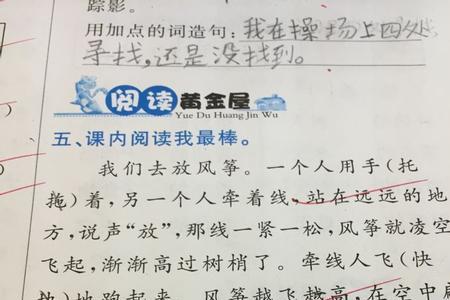 踪影。
用加点的词造句：我在操场上四处
寻找，还是没找到。
阅读黄金屋
Yue Du Huang Jin Wu
五、课内阅读我最棒。
我们去放风筝。一个人用手(托
拖)着，另一个人牵着线，站在远远的地
方，说声“放”，那线一紧一松，风筝就凌空
飞起，渐渐高过树梢了。牵线人飞(快
地跑起来。风筝越飞越高，在空中